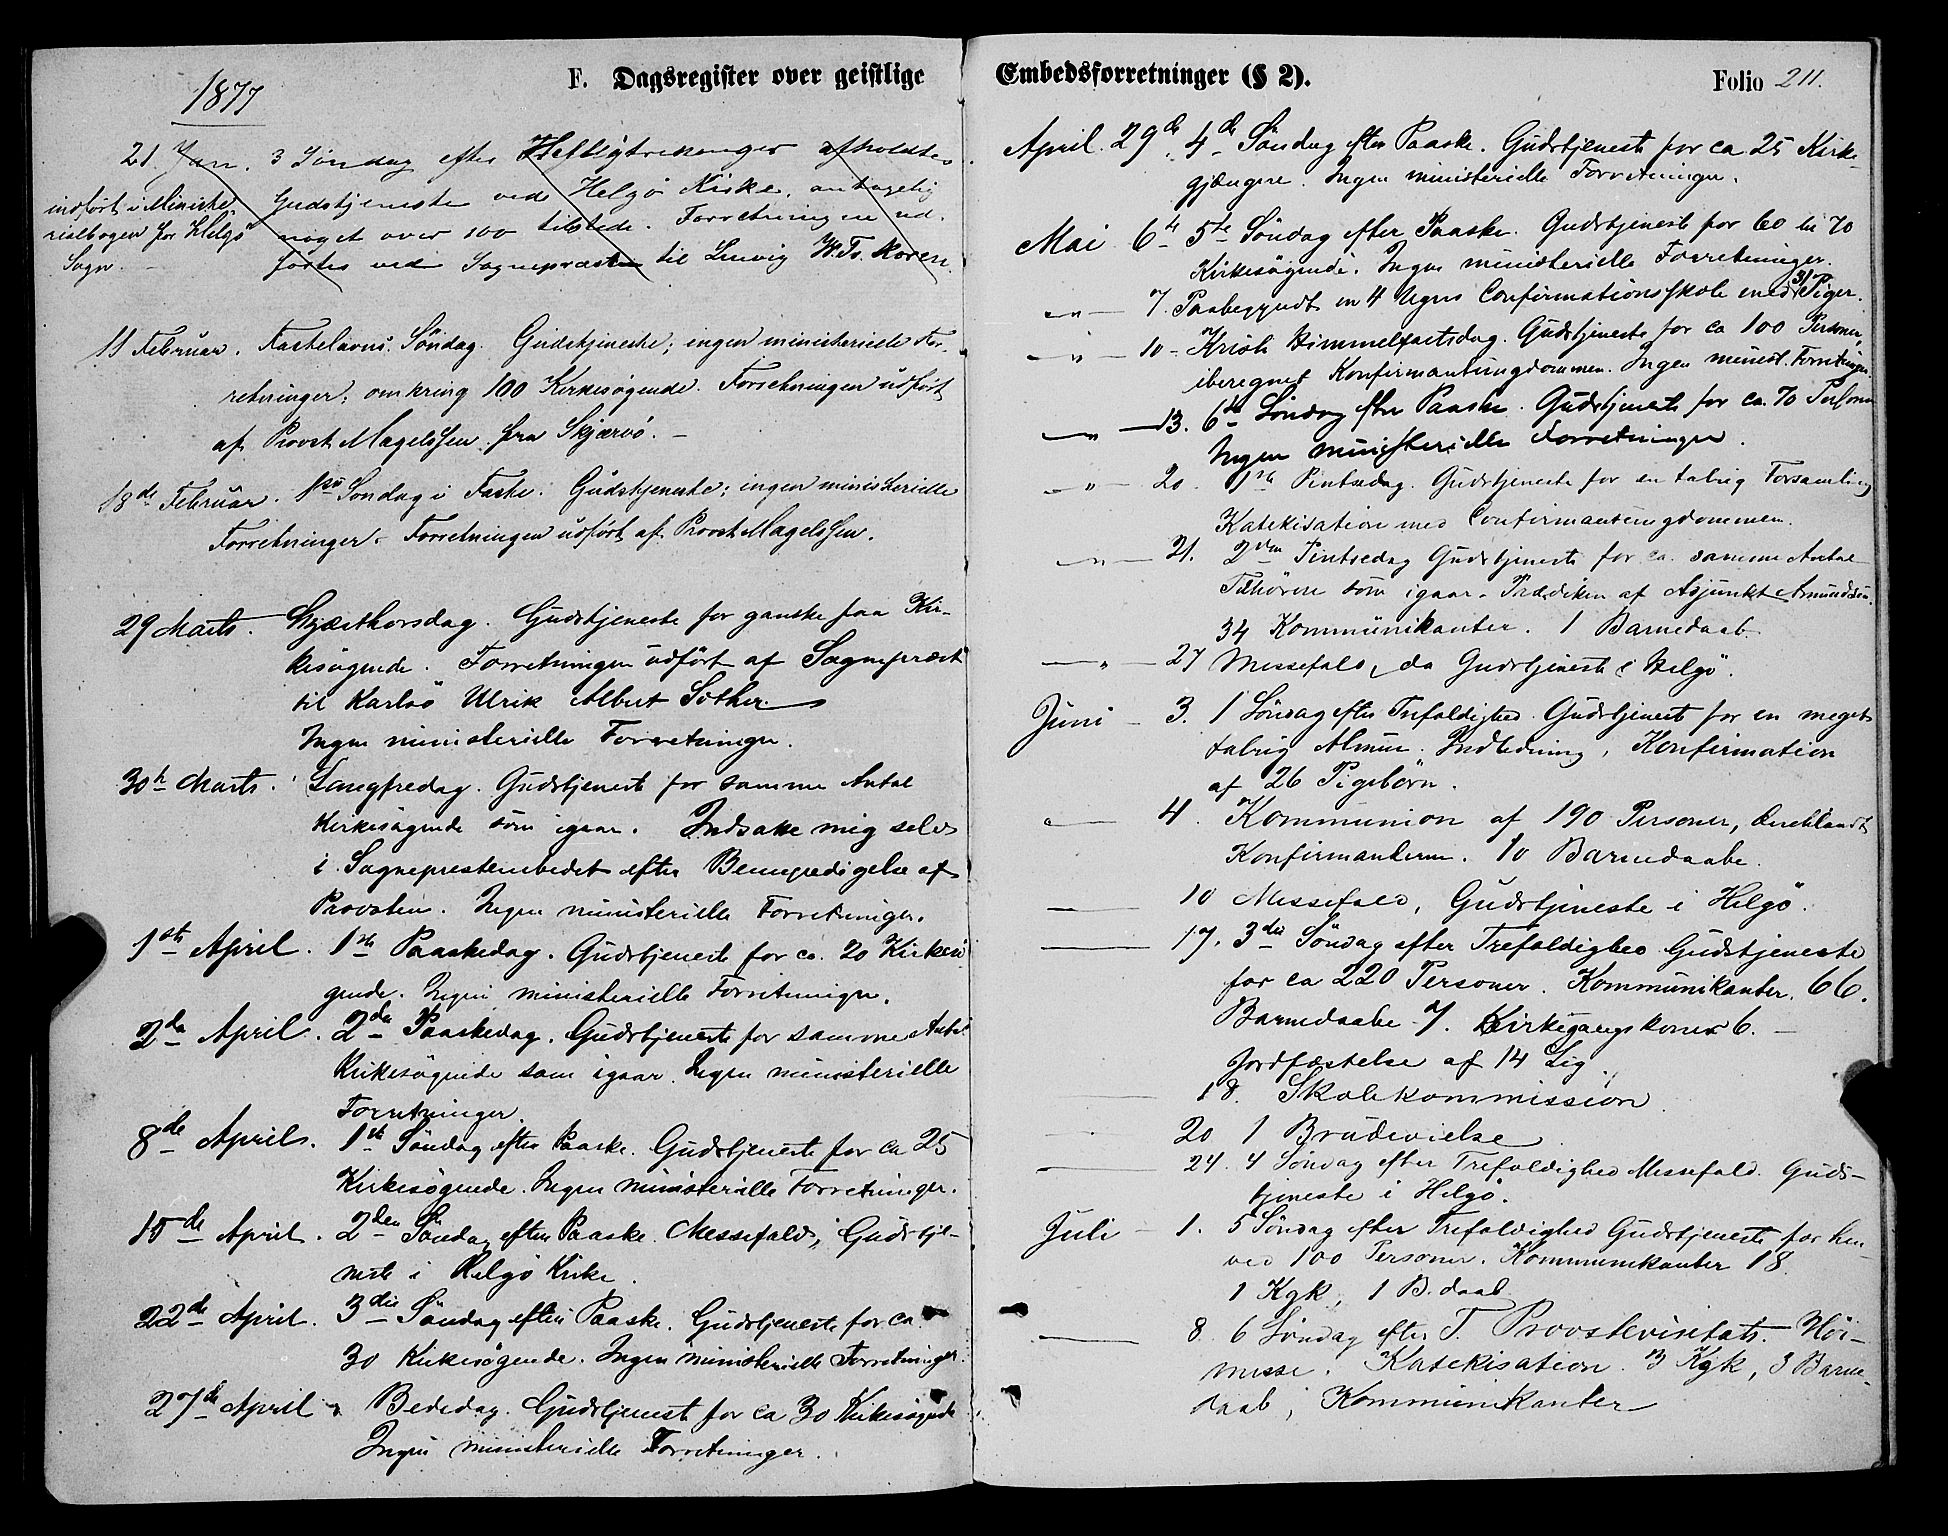 F. Dagsregister over geistlige
1877
21. Jan. 3 Søndag efter Helligtrekonger afholdtes
Gudstjeneste ved Helgö Kirke, antagelig
noget over 100 tilstede. Forretningen ud-
førtes ved Sognepræsten til Lenvig W. Fr. Koren.
indført i Ministe-
rialbogen for Helgö
Sogn. —
11 Februar. Fastelavns Söndag. Gudstjeneste; ingen ministerielle For-
retninger; omkring 100 Kirkesøgende. Forretningen udført
af Provst Magelssen fra Skjærvö. —
18de Februar. 1ste Søndag i Faste. Gudstjeneste; ingen ministerielle
Forretninger. Forretningen udført af Provst Magelssen.
29 Marts. Skjærthorsdag. Gudstjeneste for ganske faa Kir-
kesøgende. Forretningen udført af Sognepræst
til Karlsö Ulrik Albert Söther.
Ingen ministerielle Forretninger.
30te Marts. Langfredag. Gudstjeneste for samme Antal
Kirkesøgende som igaar. Indsatte mig selv
i Sogneprestembedet efter Bemyndigelse af
Provsten. Ingen ministerielle Forretninger.
1ste April. 1ste Paaskedag. Gudstjeneste for ca. 20 Kirkesö-
gende. Ingen ministerielle Forretninger.
2den April. 2den Paaskedag. Gudstjeneste for samme Antal
Kirkesøgende som igaar. Ingen ministerielle
Forretninger.
8de April. 1ste Söndag efter Paaske. Gudstjeneste for ca 25
Kirkesøgende. Ingen ministerielle Forretninger.
15de April. 2den Söndag efter Paaske. Messefald, Gudstje-
neste i Helgö Kirke.
22de April. 3die Söndag efter Paaske. Gudstjeneste for ca
30 Kirkesøgende. Ingen ministerielle Forretninger.
27de April. Bededag. Gudstjeneste for ca 30 Kirkesøgende
Ingen ministerielle Forretninger.
Embedsforretninger (§ 2).
Folio 211.
April. 29de 4de Söndag efter Paaske. Gudstjeneste for ca 25 Kirke-
gjængere. Ingen ministerielle Forretninger.
Mai 6te 5te Söndag efter Paaske. Gudstjeneste for 60 til 70
Kirkesøgende. Ingen ministerielle Forretninger.
—"— 7. Paabegyndt en 4 Ugers Confirmationsskole med 31 Piger.
—"— 10 - Kristi Himmelfartsdag. Gudstjeneste for ca 100 Personer,
iberegnet Konfirmantungdommen. Ingen minist. Forretninger.
—"— 13. 6te Söndag efter Paaske. Gudstjeneste for ca. 70 Personer
Ingen ministerielle Forretninger.
—"— 20. 1ste Pintsedag. Gudstjeneste for en talrig Forsamling
Katekisation med Confirmantungdommen.
—"— 21. 2den Pintsedag Gudstjeneste for ca. samme Antal
Tilhörere som igaar. Prædiken af Adjunkt Amundsen.
34 Kommunikanter. 1 Barnedaab
—"— 27 Messefald, da Gudstjeneste i Helgö.
Juni - 3. 1 Söndag efter Trefoldighed. Gudstjeneste for en meget
talrig Almue. Indledning, Konfirmation
af 26 Pigebörn.
—— 4. Kommunion af 190 Personer, deriblandt
Konfirmanterne. 10 Barnedaabe.
—— 10 Messefald, Gudstjeneste i Helgö.
—— 17. 3die Söndag efter Trefoldighed Gudstjeneste
for ca 220 Personer. Kommunikanter. 66.
Barnedaabe 7. Kirkegangskoner 6. —
Jordfæstelse af 14 Lig.
18. Skolekommission
20 1 Brudevielse
—— 24. 4 Söndag efter Trefoldighed Messefald. Guds-
tjeneste i Helgö.
Juli - 1. 5 Söndag efter Trefoldighed Gudstjeneste for hen-
ved 100 Personer. Kommunikanter 18
1 Kgk, 1 B. daab
—— 8. 6 Söndag efter T. Provstevisitats. Höi-
messe. Katekisation. 3 Kgk, 3 Barne-
daab, Kommunikanter